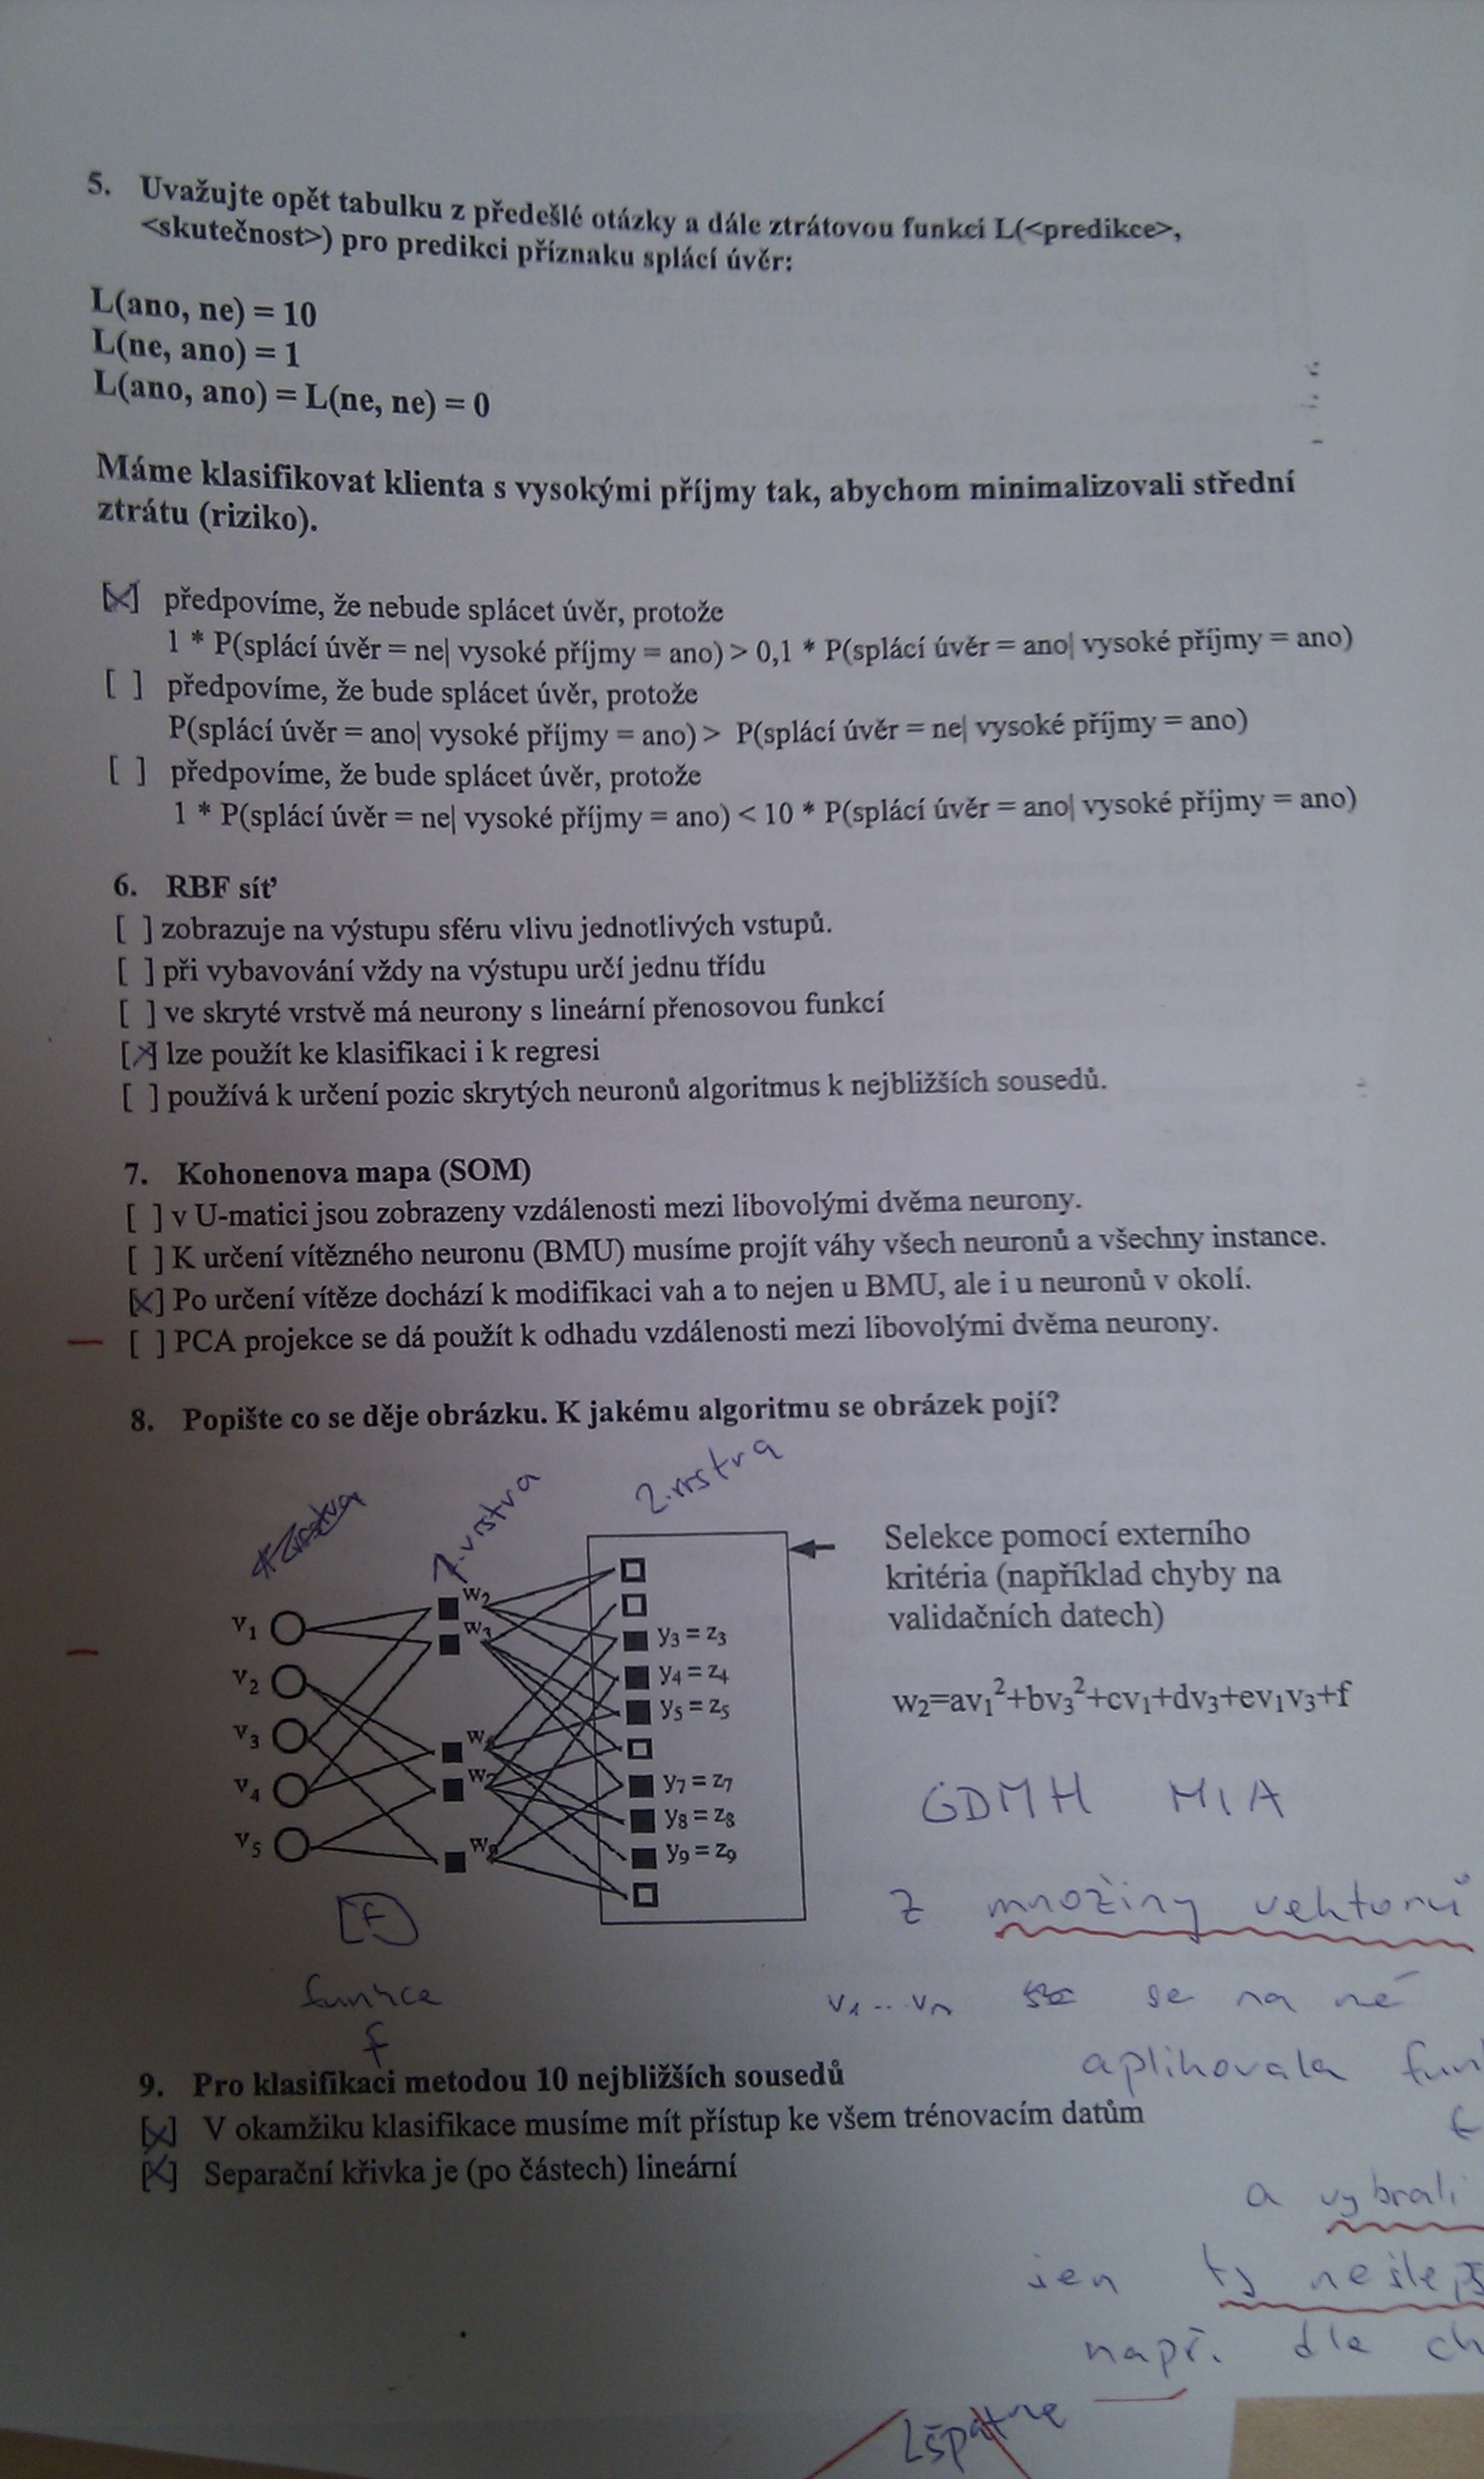 5. Uvažujte opět tabulku z předešlé otázky a dále ztrátovou funkcí L(<predikce>,
<skutečnost>) pro predikci příznaku splácí úvěr:
L(ano, ne) = 10
L(ne, ano) = 1
L(ano, ano) = L(ne, ne) = 0
Máme klasifikovat klienta s vysokými příjmy tak, abychom minimalizovali střední
ztrátu (riziko).
[x] předpovíme, že nebude splácet úvěr, protože
1 * P(splácí úvěr = ne| vysoké příjmy = ano) > 0,1 * P(splácí úvěr = ano| vysoké příjmy = ano)
[ ] předpovíme, že bude splácet úvěr, protože
P(splácí úvěr = ano| vysoké příjmy = ano) > P(splácí úvěr = ne| vysoké příjmy = ano)
[ ] předpovíme, že bude splácet úvěr, protože
1 * P(splácí úvěr = ne| vysoké příjmy = ano) < 10 * P(splácí úvěr = ano| vysoké příjmy = ano)
6. RBF síť
[ ] zobrazuje na výstupu sféru vlivu jednotlivých vstupů.
[ ] při vybavování vždy na výstupu určí jednu třídu
[ ] ve skryté vrstvě má neurony s lineární přenosovou funkcí
[x] lze použít ke klasifikaci i k regresi
[ ] používá k určení pozic skrytých neuronů algoritmus k nejbližších sousedů.
7. Kohonenova mapa (SOM)
[ ] v U-matici jsou zobrazeny vzdálenosti mezi libovolými dvěma neurony.
[ ] K určení vítězného neuronu (BMU) musíme projít váhy všech neuronů a všechny instance.
[x] Po určení vítěze dochází k modifikaci vah a to nejen u BMU, ale i u neuronů v okolí.
[ ] PCA projekce se dá použít k odhadu vzdálenosti mezi libovolými dvěma neurony.
8. Popište co se děje obrázku. K jakému algoritmu se obrázek pojí?
1. vrstva
2. vrstva
Selekce pomocí externího
kritéria (například chyby na
validačních datech)
v1
v2
v3
v4
v5
w2
w3
y3 = z3
y4 = z4
y5 = z5
y7 = z7
y8 = z8
y9 = z9
w2=av1²+bv3²+cv1+dv3+ev1v3+f
GDMH MIA
z množiny vektorů
v1 .. vn se na ně
aplikovala
a vybrali
jen ty
např. dle
f
funkce
f
9. Pro klasifikaci metodou 10 nejbližších sousedů
[x] V okamžiku klasifikace musíme mít přístup ke všem trénovacím datům
[x] Separační křivka je (po částech) lineární